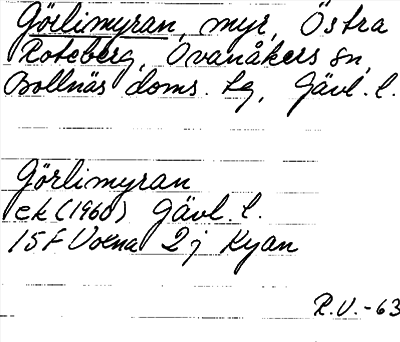 Görlimyran, myr, Östra
Roteberg, Ovanåkers sn,
Bollnäs doms. tg, Gävl. l.
Görlimyran
ek (1960) Gävl. l.
15F Voxna 2j Kyan
R.V. -63